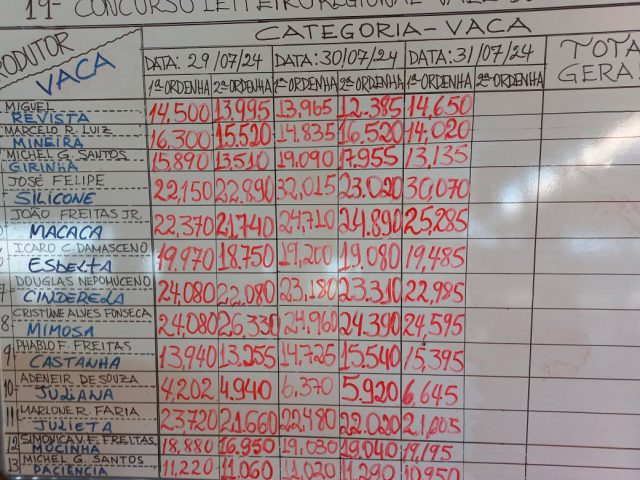 19º CONCURSO LEITEIRO REGIONAL
CATEGORIA - VACA
PRODUTOR VACA
DATA: 29/07/24 DATA: 30/07/24 DATA: 31/07/24
TOTAL GERAL
1ª ORDENHA 2ª ORDENHA 1ª ORDENHA 2ª ORDENHA 1ª ORDENHA 2ª ORDENHA
MIGUEL
REVISTA 14,500 13,995 13,965 12.385 14,650
MARCELO R. LUIZ
MINEIRA 16,300 15.520 14.835 16.520 14.020
MICHEL G. SANTOS
GIRINHA 15.890 13,510 19.090 17.955 13,135
JOSÉ FELIPE
SILICONE 22,150 22.890 32,015 23.020 30,070
JOÃO FREITAS JR.
MACACA 22,370 21,740 24,710 24.890 25,285
ICARO C. DAMASCENO
ESBELTA 19.970 18.750 19,200 19.080 19,485
DOUGLAS NEPOMUCENO
CINDERELA 24,080 22.080 23,180 23.310 22,985
8- CRISTIANE ALVES FONSECA
MIMOSA 24,080 26,330 24,960 24.390 24,595
9 PHABLO F. FREITAS
CASTANHA 13,940 13,255 14,725 15.540 15,395
10- ADENEIR DE SOUZA
JULIANA 4,202 4.940 6,370 5.920 6,645
11 MARLONE R. FARIA
JULIETA 23720 21.660 22,480 22.020 21,005
12 SIMONICA V. F. FREITAS
MOCINHA 18,880 16.950 19,030 19.040 19,195
13 MICHEL G. SANTOS
PACIÊNCIA 11,220 11.060 11,020 11.290 10,950